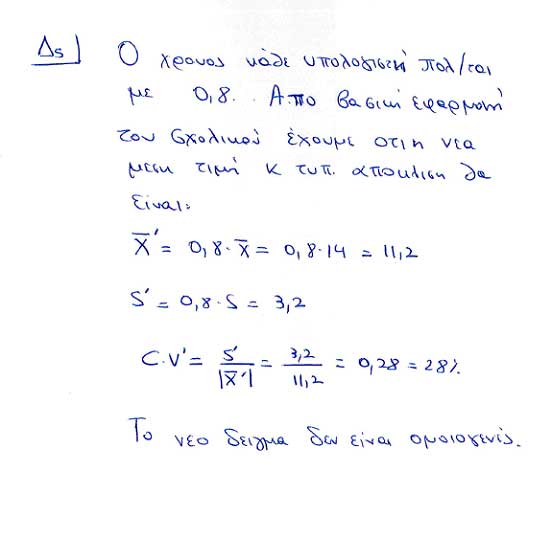 Δ5
Ο χρονος κάθε υπολογιστή πολ/ται
με 0,8. Απο βασική εφαρμογή
του σχολικού έχουμε οτι η νεα
μεση τιμή κ τυπ. αποκλιση θα
είναι:
X̅' = 0,8·X̅ = 0,8·14 = 11,2
S' = 0,8·S = 3,2
C.V' = S'/|X̅'| = 3,2/11,2 = 0,28 = 28%.
Το νεο δειγμα δεν είναι ομοιογενές.